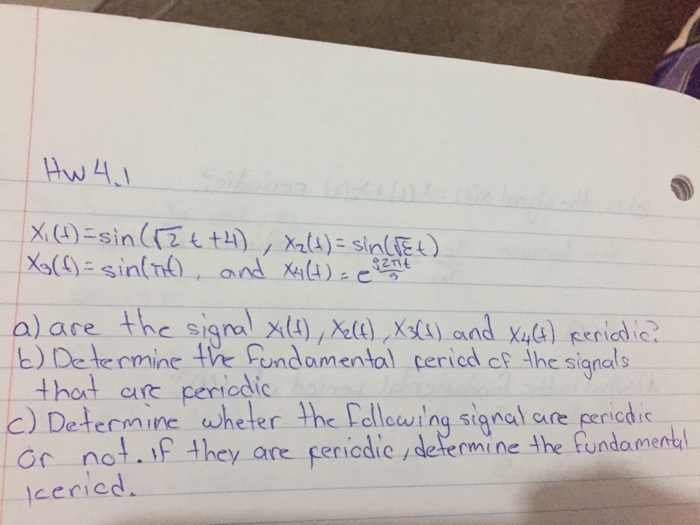 HW 4.1
x₁(t)=sin(√2 t +4), x₂(t)=sin(√ t)
x₃(t)=sin(πt), and x₄(t)=e^(j2πt/3)
a) are the signal x₁(t), x₂(t), x₃(t) and x₄(t) periodic?
b) Determine the fundamental period of the signals
that are periodic
c) Determine wheter the following signal are periodic
or not. if they are periodic, determine the fundamental
period.